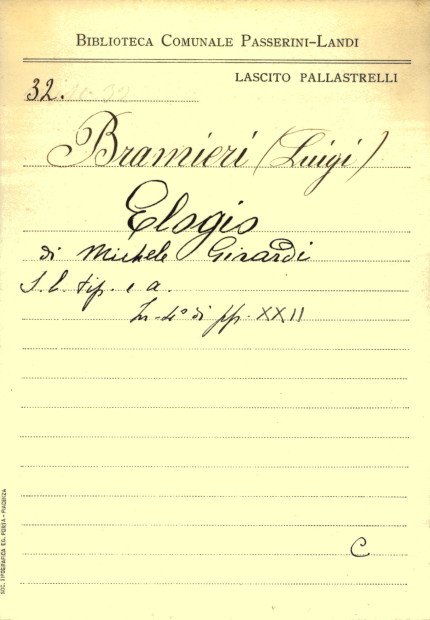 BIBLIOTECA COMUNALE PASSERINI-LANDI
LASCITO PALLASTRELLI
32.
Bramieri (Luigi)
Elogio
di Michele Girardi
S. l. tip. e a.
In-4° di pp. XXII
C
SOC. TIPOGRAFICA ED. PORTA - PIACENZA